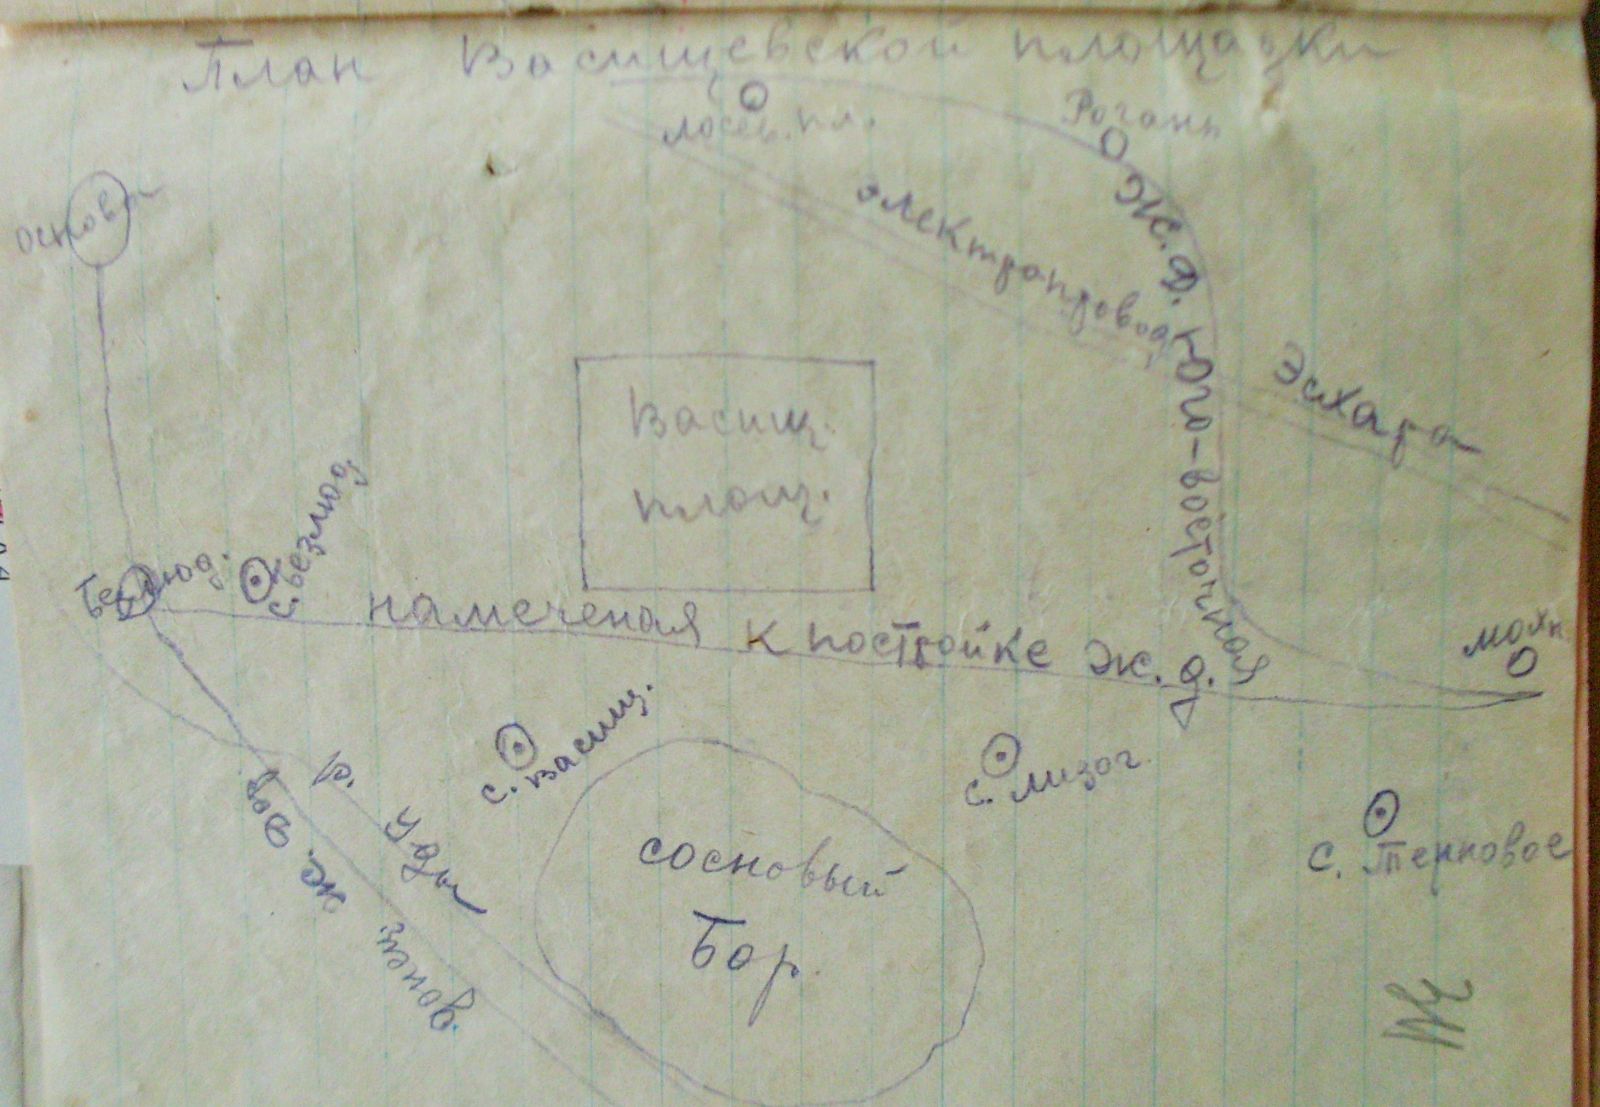 План Васищевской площадки
лосев. пл.
Рогань
основа
электропровод
Эсхара
Ж.Д. Юго-восточная
Васищ.
площ.
Безлюд.
с. Безлюд.
намеченая к постройке Ж.Д.
мохн.
с. Васищ.
с. лизог.
р. Уды
с. Терновое
сосновый
Бор.
донец. ж. дор